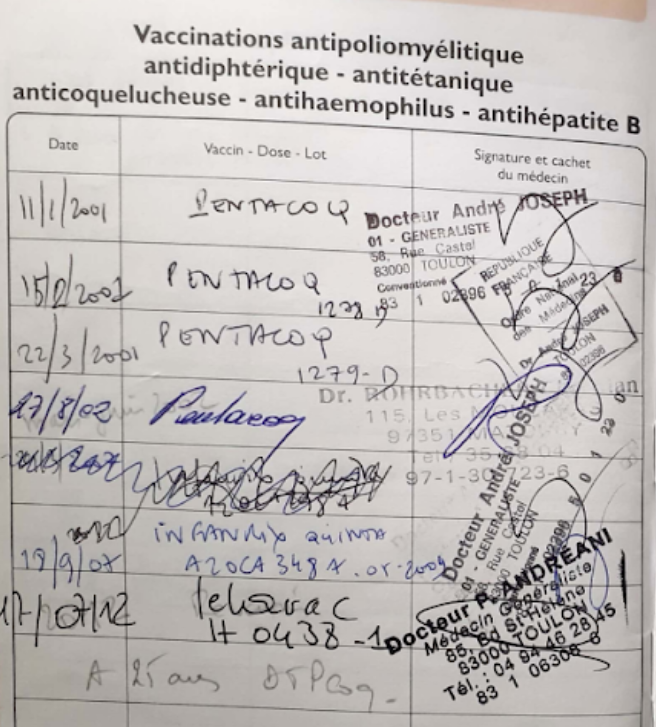 Vaccinations antipoliomyélitique
antidiphtérique - antitétanique
anticoquelucheuse - antihaemophilus - antihépatite B
Date
Vaccin - Dose - Lot
Signature et cachet
du médecin
11/1/2001
PENTACOQ
Docteur André JOSEPH
01 - GENERALISTE
58, Rue Castel
83000 TOULON
Conventionné
83 1 02396
REPUBLIQUE
FRANÇAISE
Ordre National
des Médecins
Dr André JOSEPH
TOULON
02396
15/2/2001
PENTACOQ
1278
22/3/2001
PENTACOQ
1279-D
Dr. ROHRBACH
115, Les
97351
97-1-30 23-6
27/8/02
Pentacoq
Docteur André JOSEPH
01 - GENERALISTE
58, Rue Castel
83000 TOULON
19/9/07
INFANRIX QUINTA
A20CA348A. 05-2009
17/07/12
Tetravac
H 0438-1
Docteur P. ANDREANI
Médecin Généraliste
85, Bd St Hélène
83000 TOULON
Tél. : 04 94 46 28 45
83 1 06308 6
A 25 ans DTPCoq-